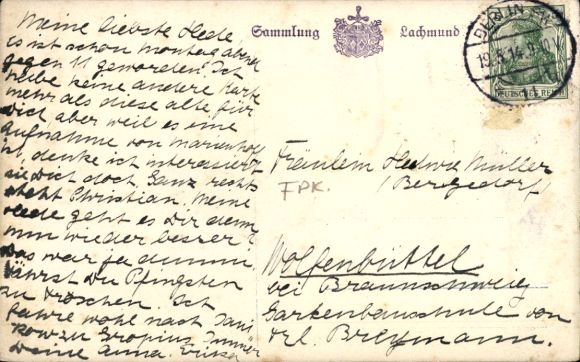 Meine liebste Hede,
es ist schon Montag abend
gegen 11 geworden. Ich
habe keine andere Karte
mehr als diese alte für
Dich aber weil es eine
Aufnahme von Marienhof
ist, denke ich interessiert
sie Dich doch. Ganz rechts
steht Christian. Meine
Hede geht es Dir denn
nun wieder besser?
Das war ja dumm,
Pfingsten
zu
fahre wohl nach
zu Gropius
Deine Anna.
Sammlung Lachmund
BERLIN
DEUTSCHES REICH
Fräulein Hedwig Müller
(Bergedorf)
FPK.
Wolfenbüttel
bei Braunschweig
Gartenbauschule von
Frl. Breymann.